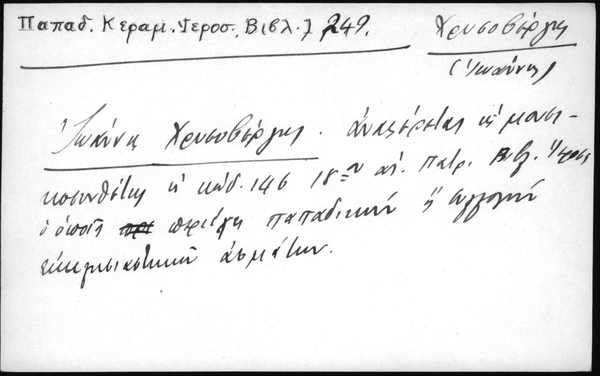 Παπαδ. Κεραμ. Ἱεροσ. Βιβλ. 249.
Χρυσοβέργης
(Ἰωάννης)
Ἰωάννης Χρυσοβέργης. ἀναφέρεται ὡς μουσι-
κοσυνθέτης ἐν κώδ. 146 18ου αἰ. Πατρ. Βιβλ. Ἱεροσ
ὁ ὁποῖος περιέχει παπαδικὴν ἢ συλλογὴν
ἐκκλησιαστικῶν ἀσμάτων.